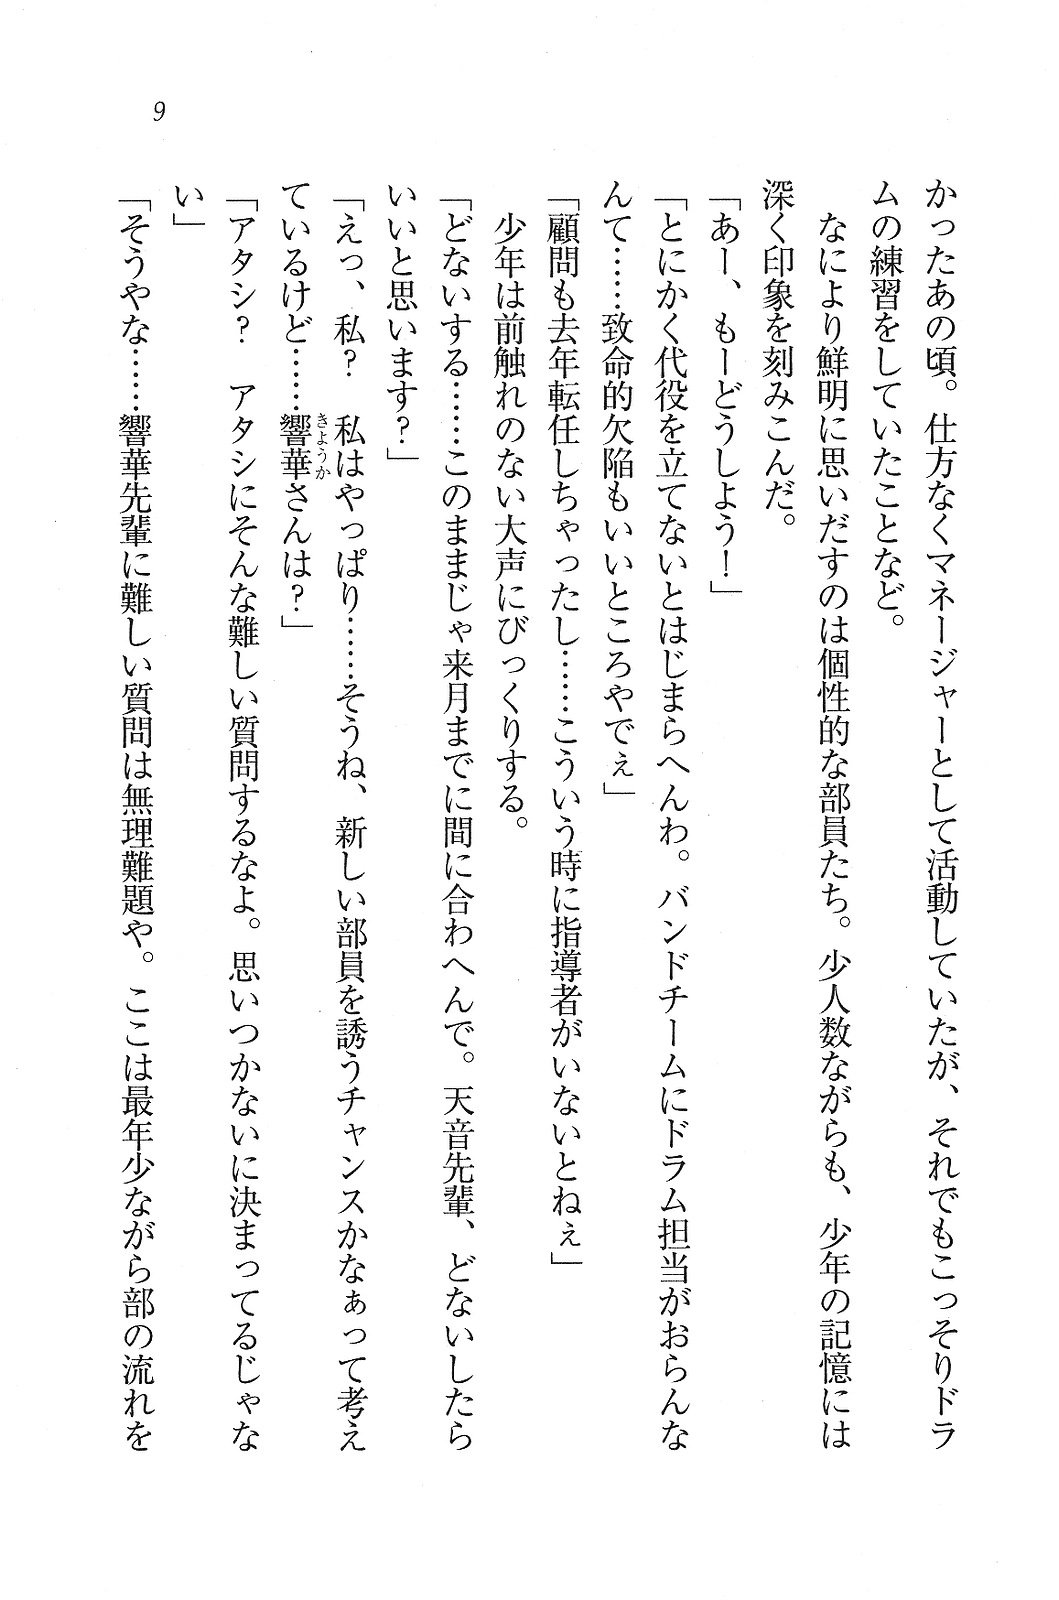 9
かったあの頃。仕方なくマネージャーとして活動していたが、それでもこっそりドラ
ムの練習をしていたことなど。
　なにより鮮明に思いだすのは個性的な部員たち。少人数ながらも、少年の記憶には
深く印象を刻みこんだ。
「あー、もーどうしよう！」
「とにかく代役を立てないとはじまらへんわ。バンドチームにドラム担当がおらんな
んて……致命的欠陥もいいところやでぇ」
「顧問も去年転任しちゃったし……こういう時に指導者がいないとねぇ」
　少年は前触れのない大声にびっくりする。
「どないする……このままじゃ来月までに間に合わへんで。天音先輩、どないしたら
いいと思います？」
「えっ、私？　私はやっぱり……そうね、新しい部員を誘うチャンスかなぁって考え
ているけど……響華きょうかさんは？」
「アタシ？　アタシにそんな難しい質問するなよ。思いつかないに決まってるじゃな
い」
「そうやな……響華先輩に難しい質問は無理難題や。ここは最年少ながら部の流れを